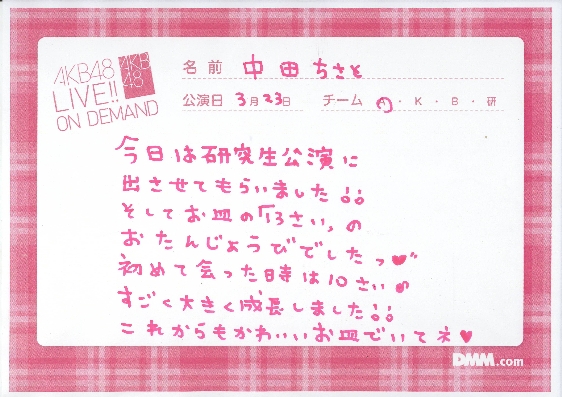 AKB48
LIVE!!
ON DEMAND
AKB
48
名前 中田ちさと
公演日 3月23日 チーム A・K・B・研
今日は研究生公演に
出させてもらいました!!
そしてお皿の「13さい」の
おたんじょうびでしたっ♥"
初めて会った日時は10さい♪
すごく大きく成長しました!!
これからもかわいいお皿でいてネ♥
DMM.com